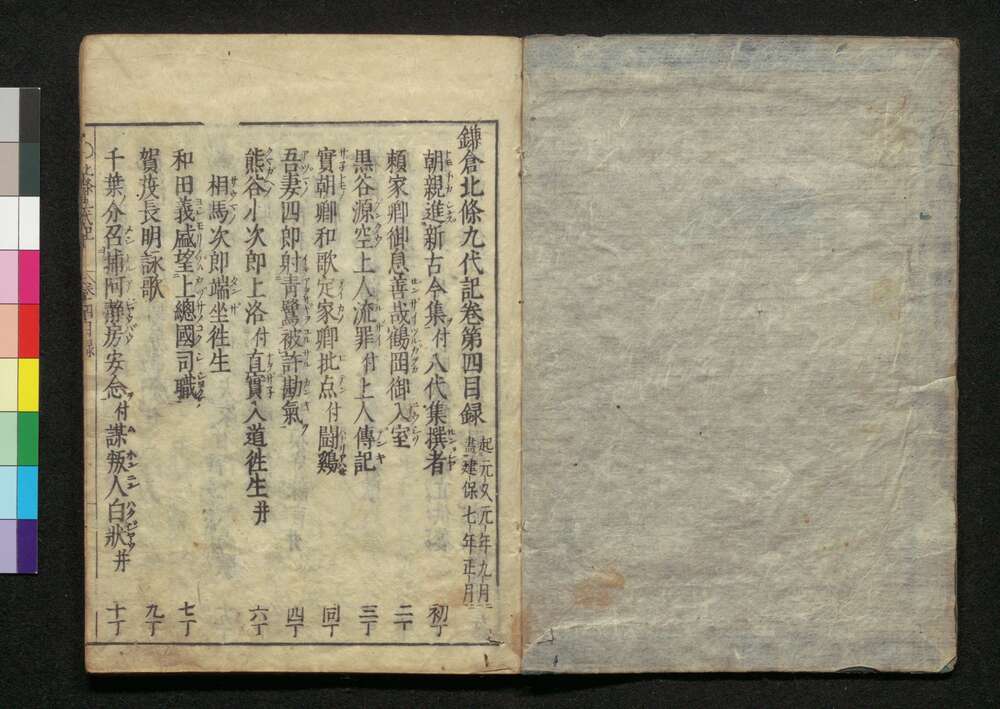 鎌倉北條九代記卷第四目録 起元久元年九月 盡建保七年正月
朝親進新古今集付八代集撰者 初丁
頼家卿御息善哉鶴岡御入室 二丁
黒谷源空上人流罪付上人傳記 三丁
實朝卿和歌定家卿批点付鬪鷄 同丁
吾妻四郎射青鷺被許勘氣 四丁
熊谷小次郎上洛付直實入道徃生并 六丁
相馬次郎端坐徃生
和田義盛望上總國司職 七丁
賀茂長明詠歌 九丁
千葉介召捕阿靜房安念付謀叛人白狀并 十丁